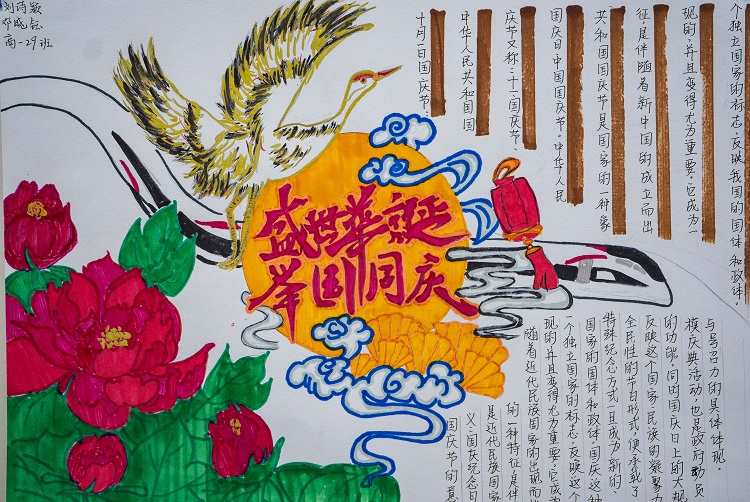 高-29班
盛世華誕
举国同庆
十月一日国庆节:
中华人民共和国国
庆节又称:十一、国庆节、
国庆日中国国庆节。中华人民
共和国国庆节是国家的一种象
征是伴随着新中国的成立而出
现的,并且变得尤为重要,它成为一
个独立国家的标志,反映我国的国体和政体.
国庆节的意
义:国庆纪念日
是近代民族国家
的一种特征是伴
随着近代民族国家的出现而
现的并且变得尤为重要,它成
一个独立国家的标志,反映这个
国家的国体和政体,国庆这种
特殊纪念方式一旦成为新的、
全民性的节日形式,便承载了
反映这个国家、民族的凝聚
的功能,同时国庆日上的大规
模庆典活动,也是政府动员
与号召力的具体体现.